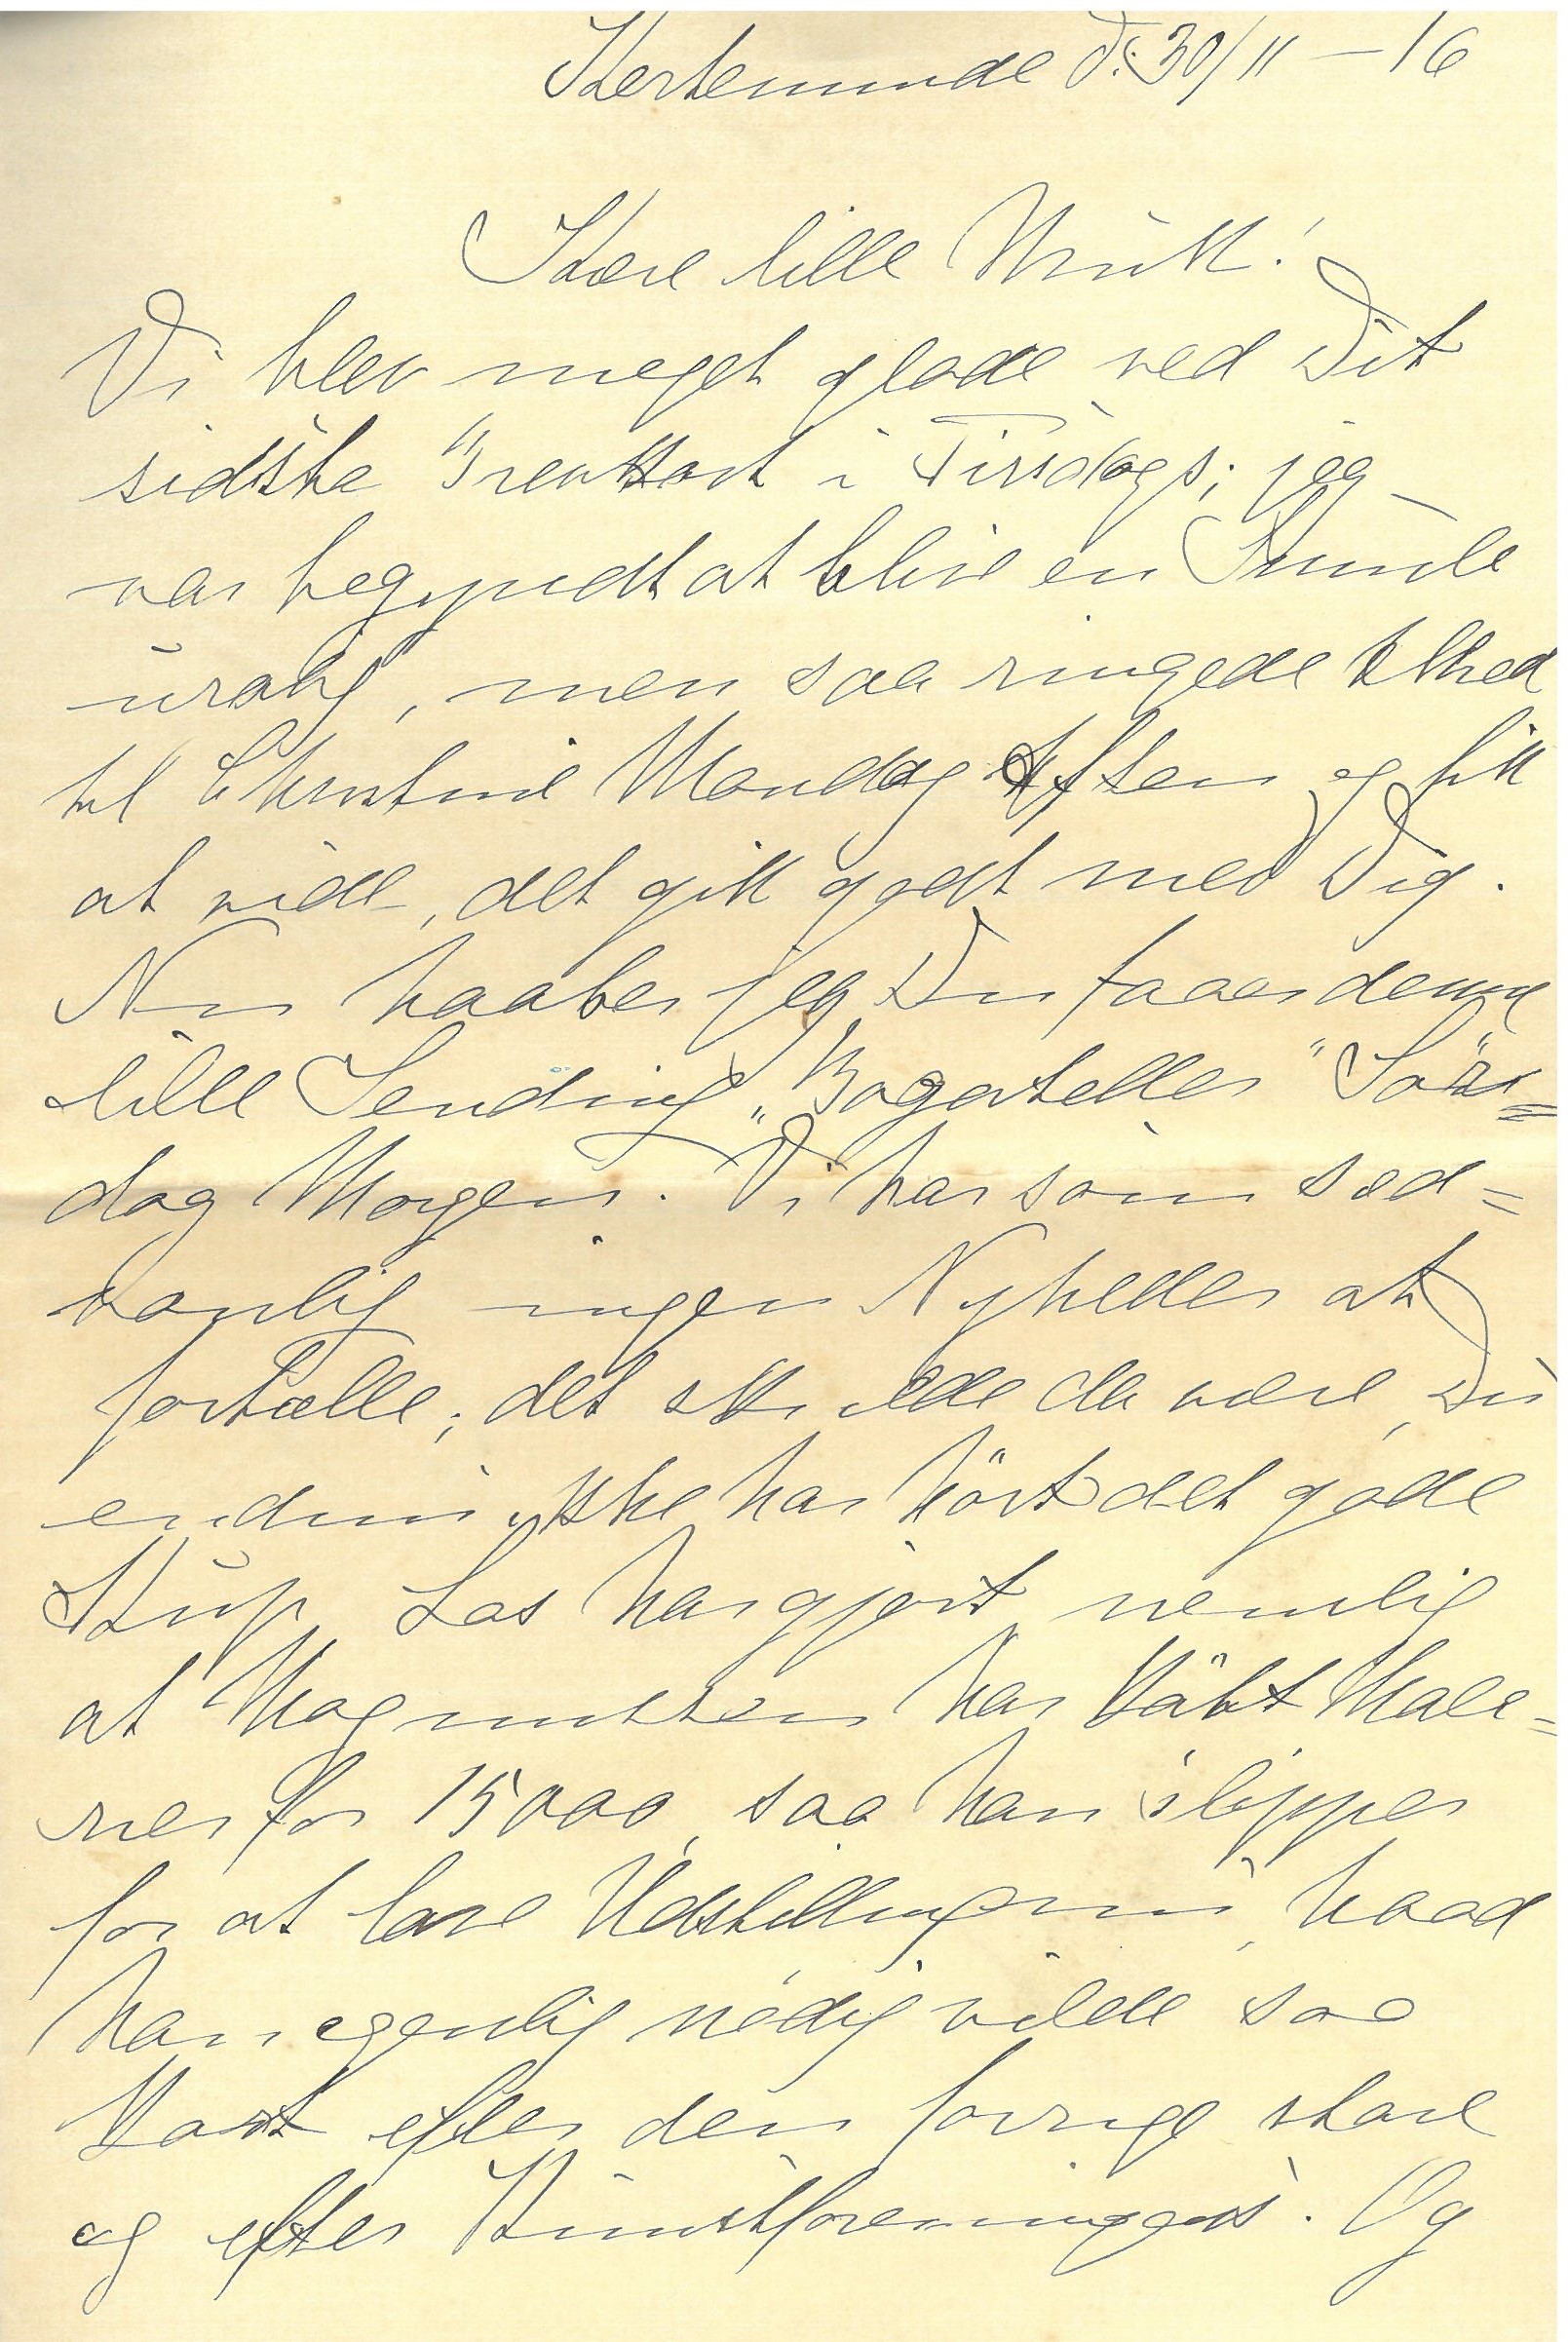 Kerteminde d: 30/11 – 16
Kære lille Mukk!
Vi blev meget glade ved Dit
sidste Brevkort i Tirsdags; jeg
var begyndt at blive en Smule
urolig, men saa ringede Alhed
til Christine Mandag Aften og fik
at vide, det gik godt med Dig.
Nu haaber jeg Du faaer denne
lille Sending „Bagateller" Søn=
dag Morgen. Vi har som sæd=
vanlig ingen Nyheder at
fortælle; det skulde da være, Du
endnu ikke har hørt det gode
Kup Las har gjort nemlig
at Magnussen har købt Male=
rier for 15000, saa han slipper
for at lave Udstillingen, hvad
han egenlig nødig vilde saa
kort efter den forrige store
og efter Kunstforeningens. Og